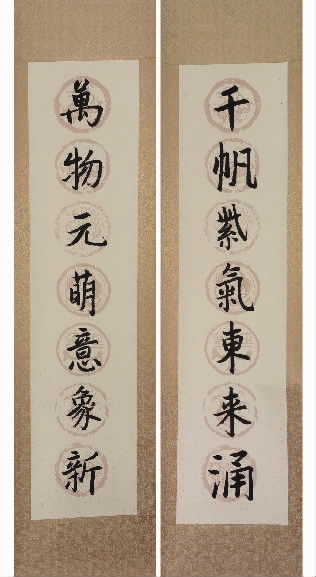 千帆紫氣東来涌
萬物元萌意象新